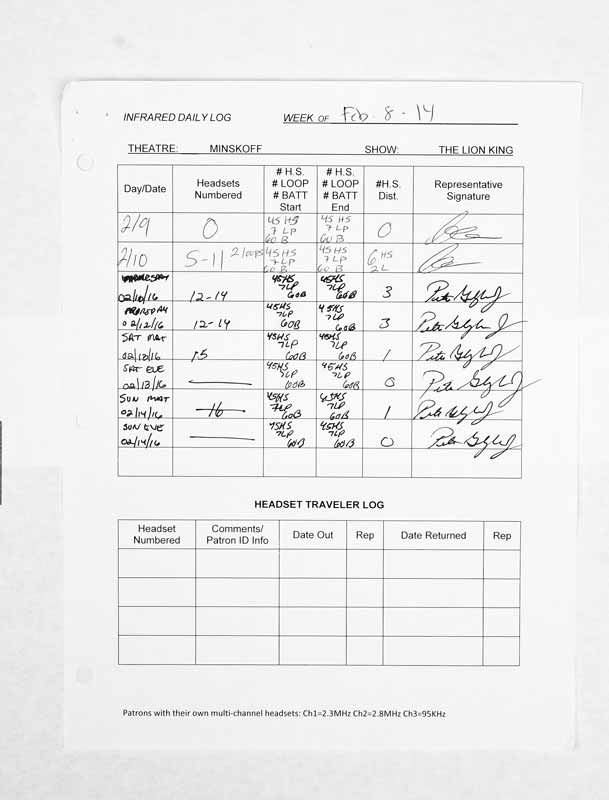 INFRARED DAILY LOG WEEK OF Feb. 8 - 14
THEATRE: MINSKOFF SHOW: THE LION KING
Day/Date Headsets Numbered # H.S. # LOOP # BATT Start # H.S. # LOOP # BATT End #H.S. Dist. Representative Signature
2/9 0 45 HS 7 LP 60 B 45 HS 7 LP 60 B 0
2/10 5-11 2 loops 45 HS 7 LP 60 B 45 HS 7 LP 60 B 6 HS 2 L
02/10/16 12-14 45HS 7LP 60B 45HS 7LP 60B 3
02/12/16 12-14 45HS 7LP 60B 45HS 7LP 60B 3
SAT MAT 02/13/16 15 45HS 7LP 60B 45HS 7LP 60B 1
SAT EVE 02/13/16 45HS 7LP 60B 45HS 7LP 60B 0
SUN MAT 02/14/16 16 45HS 7LP 60B 45HS 7LP 60B 1
SUN EVE 02/14/16 45HS 7LP 60B 45HS 7LP 60B 0
HEADSET TRAVELER LOG
Headset Numbered Comments/ Patron ID Info Date Out Rep Date Returned Rep
Patrons with their own multi-channel headsets: Ch1=2.3MHz Ch2=2.8MHz Ch3=95KHz